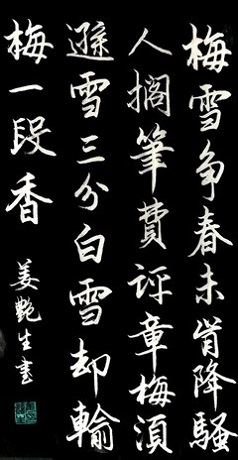 梅雪争春未肯降騷
人擱筆費評章梅須
遜雪三分白雪却輸
梅一段香
姜艷生書